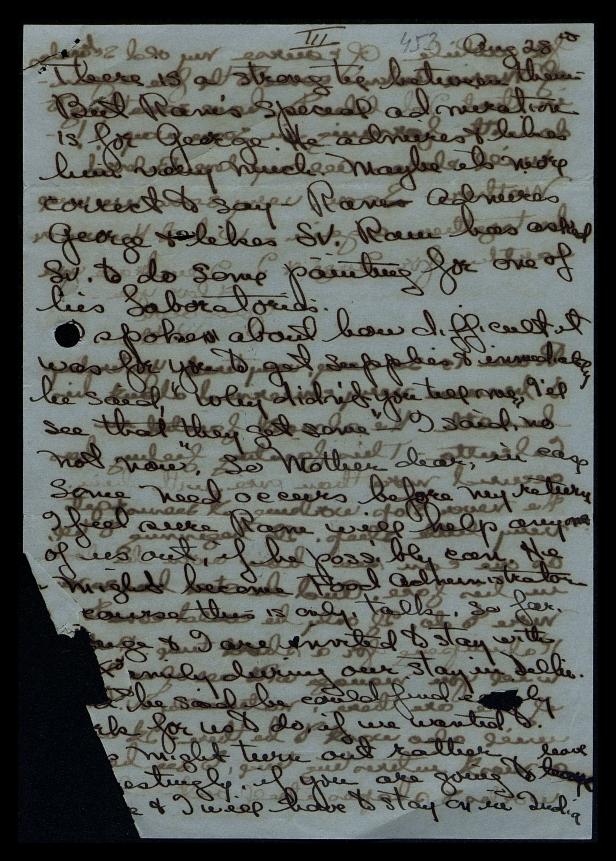 III 453 Aug 28th
There is a strong tie between them
But Ram's special admiration
is for George. He admires & likes
him very much. Maybe it's more
correct to say Ram admires
George & likes Sv. Ram has asked
Sv. to do some painting for one of
his laboratories.
I spoken about how difficult it
was for you to get supplies & immediately
he said, "Why didn't you tell me, I'll
see that they get some" I said, "no
not now". So Mother dear, in case
some need occurs before my return
I feel sure Ram will help anyone
of us out, if he possibly can. He
might become Food Administrator
course this is only talk, so far.
& I are invited to stay with
family during our stay in Delhi.
he said he could find
for us to do, if we wanted to.
might turn out rather leave
estingly, if you are going to
& I will have to stay on in India